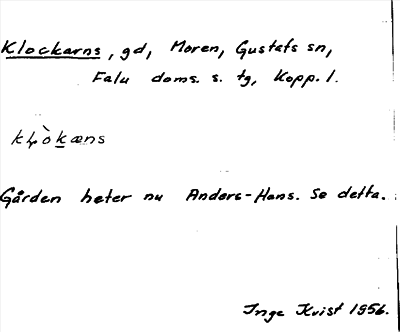 Klockarns, gd, Moren, Gustafs sn,
Falu doms. s. tg, Kopp. l.
Gården heter nu Anders-Hans. Se detta.
Inge Kvist 1956.